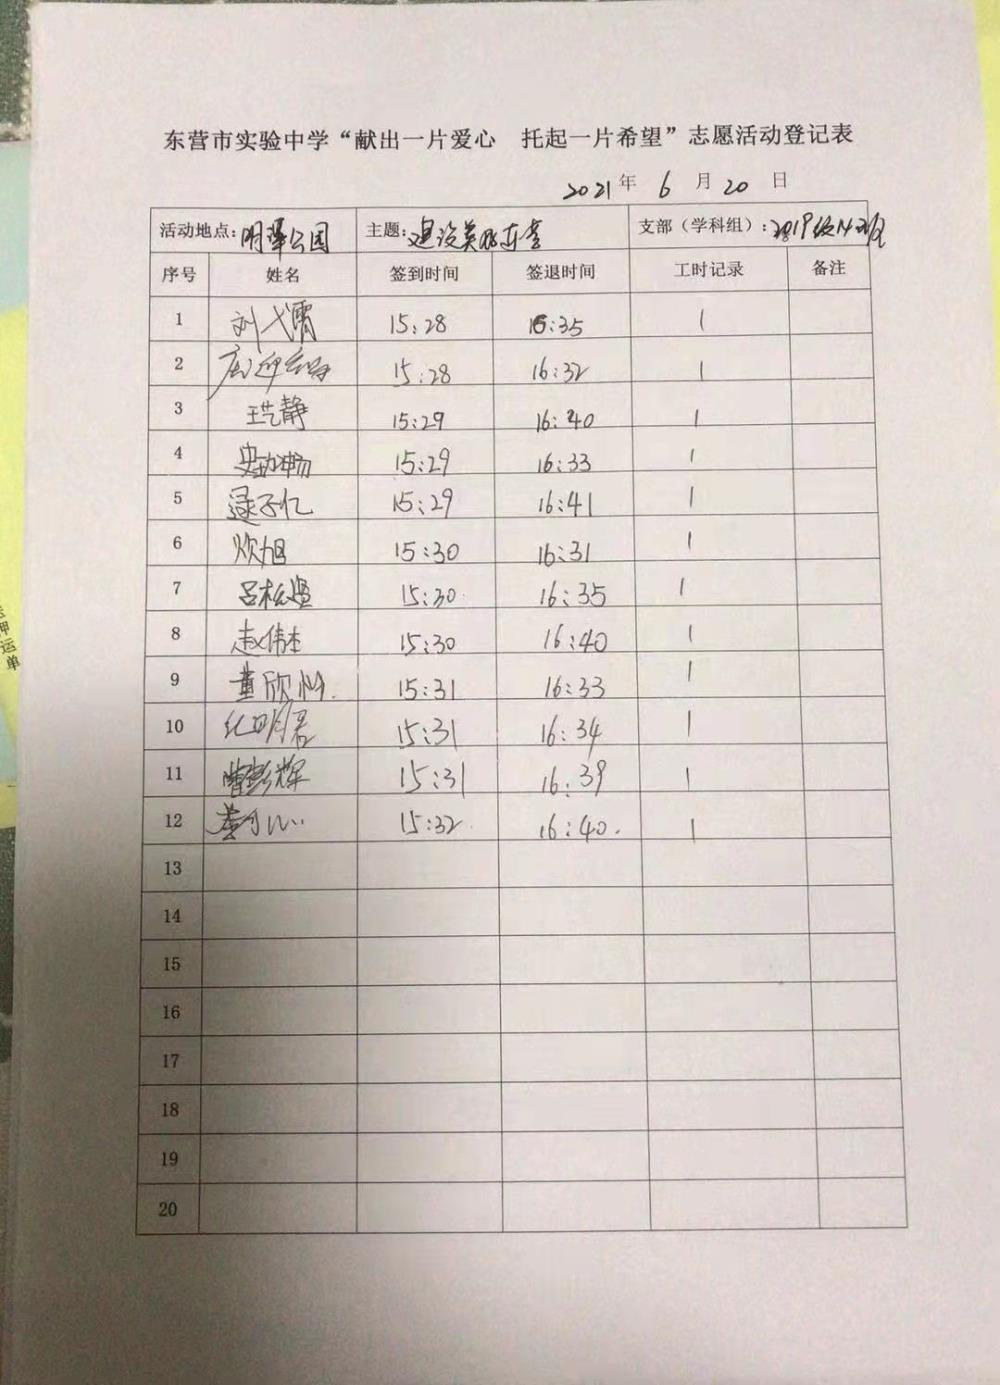 东营市实验中学“献出一片爱心 托起一片希望”志愿活动登记表
2021年 6 月 20 日
活动地点:明潭公园 主题:建设美好东营 支部（学科组）:2019级14班
序号 姓名 签到时间 签退时间 工时记录 备注
1 刘弋霈 15:28 16:35 1
2 15:28 16:32 1
3 王艺静 15:29 16:40 1
4 15:29 16:33 1
5 逯子忆 15:29 16:41 1
6 15:30 16:31 1
7 吕松 15:30 16:35 1
8 赵伟杰 15:30 16:40 1
9 董欣 15:31 16:33 1
10 纪明君 15:31 16:34 1
11 曹彭辉 15:31 16:39 1
12 15:32 16:40 1
13
14
15
16
17
18
19
20
押运单